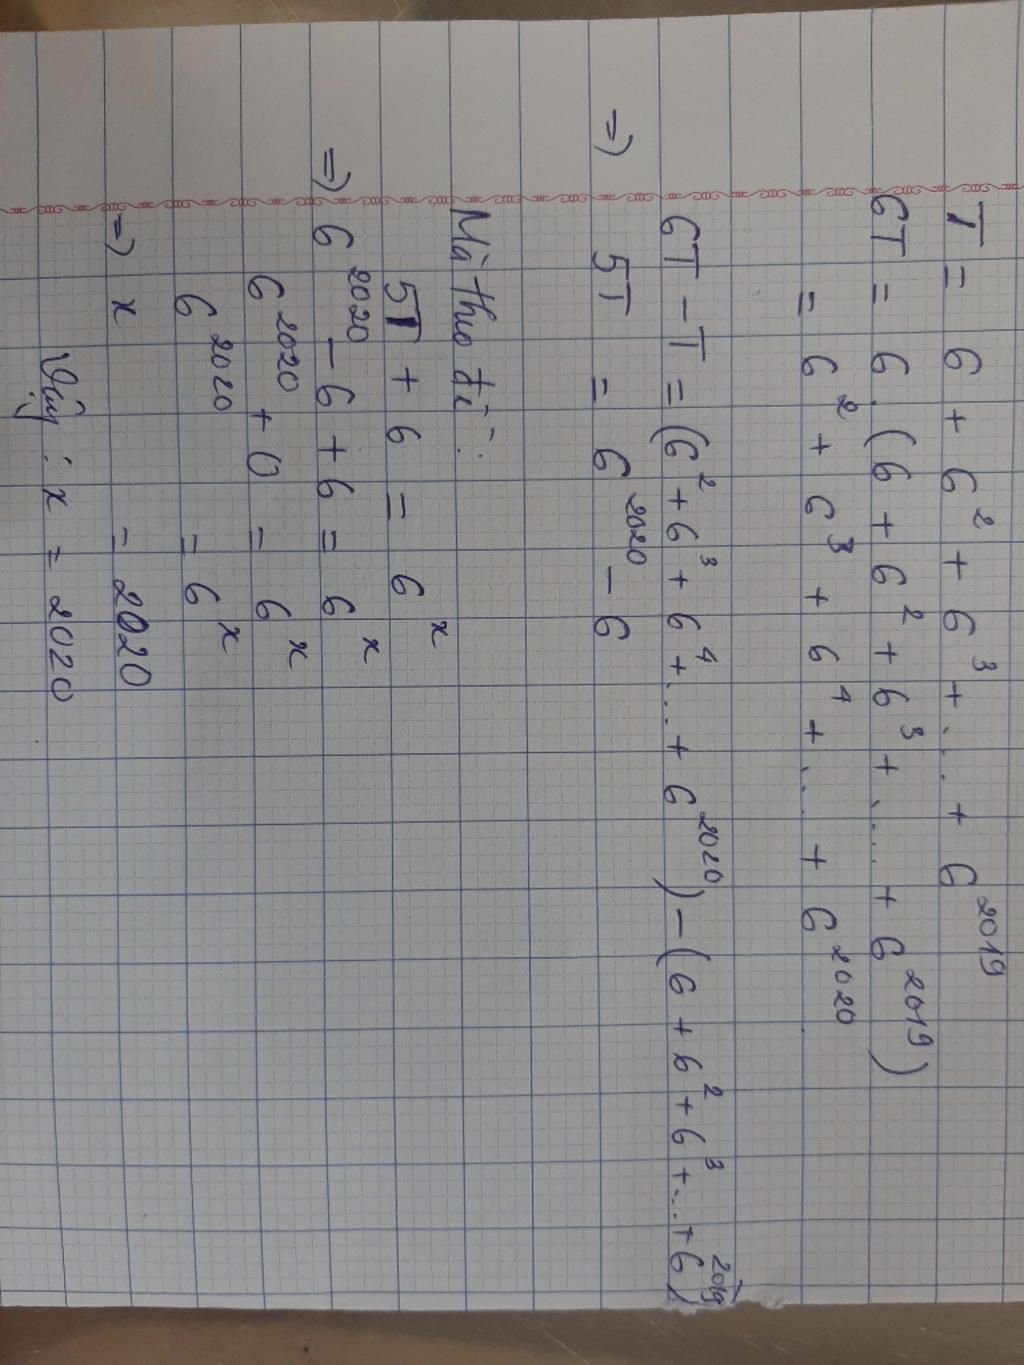 T = 6 + 6² + 6³ + ... + 6²⁰¹⁹
6T = 6.(6 + 6² + 6³ + ... + 6²⁰¹⁹)
= 6² + 6³ + 6⁴ + ... + 6²⁰²⁰
6T - T = (6² + 6³ + 6⁴ + ... + 6²⁰²⁰) - (6 + 6² + 6³ + ... + 6²⁰¹⁹)
=> 5T = 6²⁰²⁰ - 6
Mà theo đề :
5T + 6 = 6ˣ
=> 6²⁰²⁰ - 6 + 6 = 6ˣ
6²⁰²⁰ + 0 = 6ˣ
6²⁰²⁰ = 6ˣ
=> x = 2020
Vậy : x = 2020